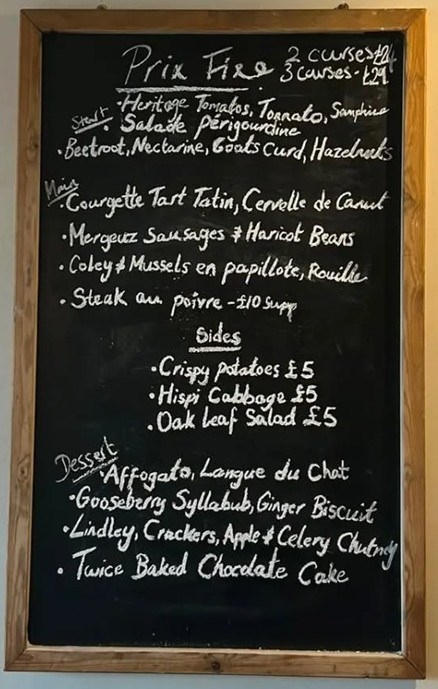 Prix Fixe 2 courses £24
3 courses - £29
Start
· Heritage Tomatos, Tonnato, Samphire
· Salade périgourdine
· Beetroot, Nectarine, Goats Curd, Hazelnuts
Main
· Courgette Tart Tatin, Cervelle de Canut
· Merguez Sausages & Haricot Beans
· Coley & Mussels en papillote, Rouille
· Steak au poivre - £10 supp
Sides
· Crispy potatoes £5
· Hispi Cabbage £5
· Oak leaf Salad £5
Dessert
· Affogato, Langue du Chat
· Gooseberry Syllabub, Ginger Biscuit
· Lindley, Crackers, Apple & Celery Chutney
· Twice Baked Chocolate Cake